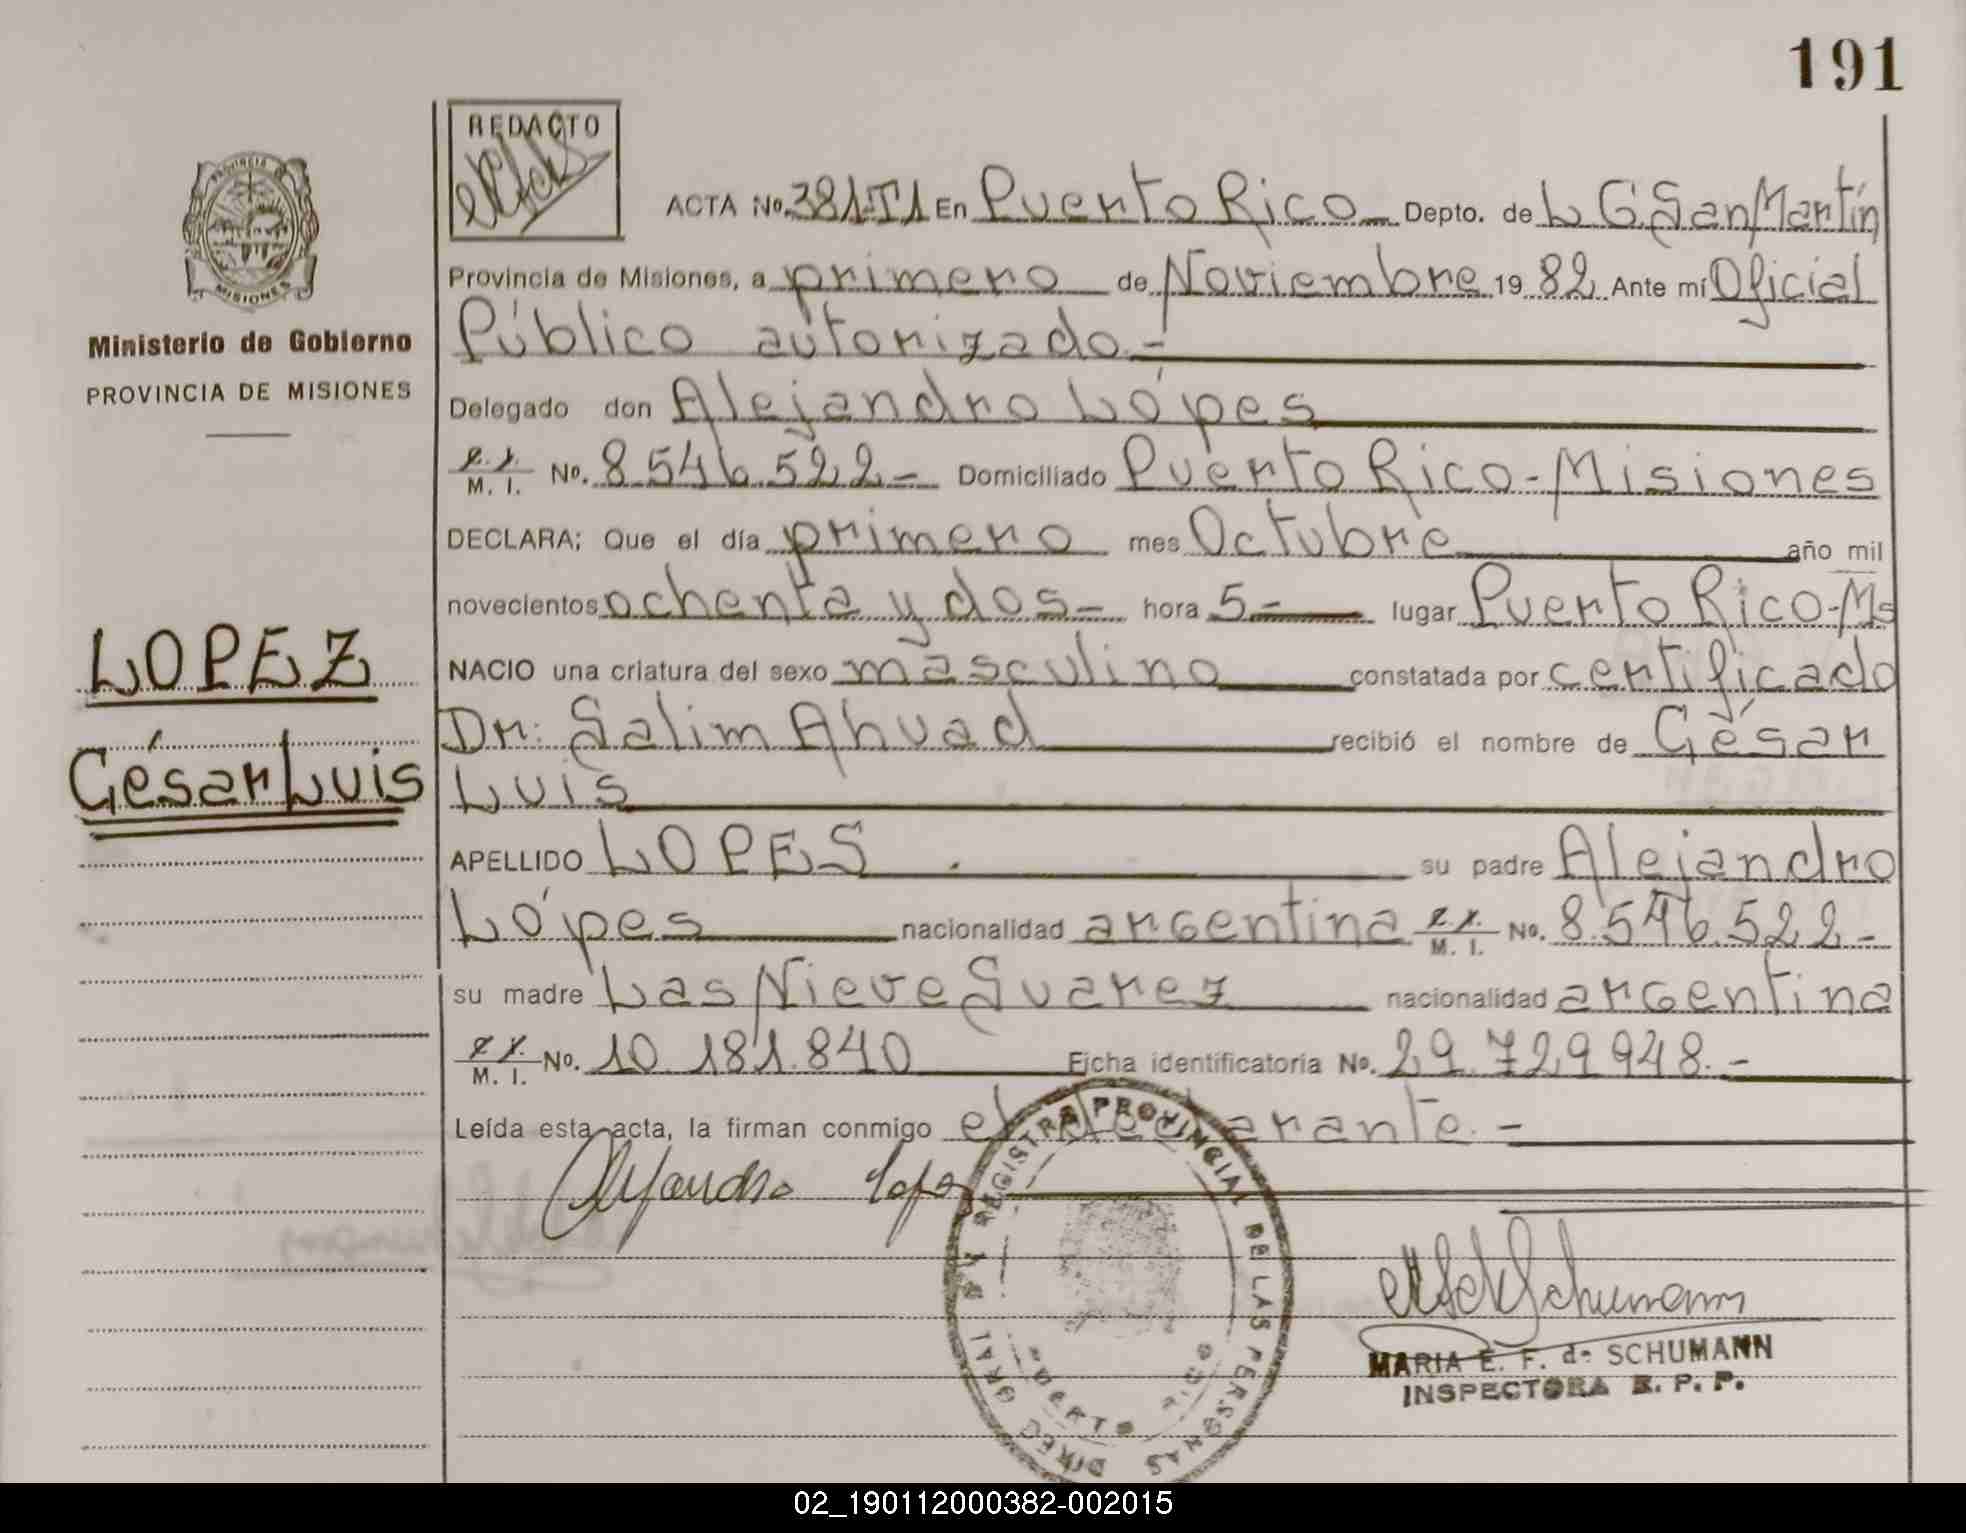 191
REDACTO
ACTA No. 381T1 En Puerto Rico Depto. de L.G.San Martín
Provincia de Misiones, a primero de Noviembre 19 82 Ante mí Oficial
Público autorizado.-
Ministerio de Gobierno
PROVINCIA DE MISIONES
Delegado don Alejandro Lópes
M. I. No. 8.546.522- Domiciliado Puerto Rico-Misiones
DECLARA; Que el día primero mes Octubre año mil
novecientos ochenta y dos- hora 5.- lugar Puerto Rico-Ms
LOPEZ
NACIO una criatura del sexo masculino constatada por certificado
Dr: Salim Ahuad recibió el nombre de César
César Luis
Luis
APELLIDO LOPES su padre Alejandro
Lópes nacionalidad argentina M. I. No. 8.546.522-
su madre Las Nieve Suarez nacionalidad argentina
M. I. No. 10.181.840 Ficha identificatoria No. 29.729948.-
Leída esta acta, la firman conmigo el declarante.-
MISIONES
REGISTRO PROVINCIAL DE LAS PERSONAS
PUERTO RICO
MARIA E. F. de SCHUMANN
INSPECTORA R. P. P.
02_190112000382-002015